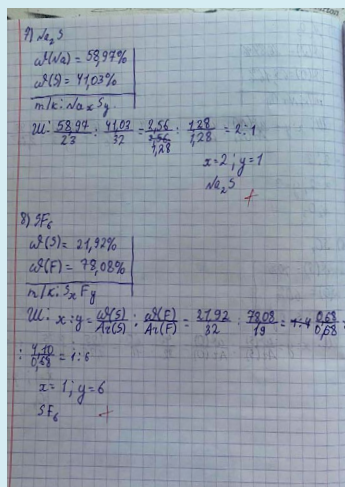 7) Na₂S
ω(Na) = 58,97%
ω(S) = 41,03%
m/k: NaxSy
Ш: 58,97/23 : 41,03/32 = 2,56/1,28 : 1,28/1,28 = 2:1
x=2; y=1
Na₂S
+
8) SF₆
ω(S) = 21,92%
ω(F) = 78,08%
m/k: SxFy
Ш: x:y = ω(S)/Ar(S) : ω(F)/Ar(F) = 21,92/32 : 78,08/19 = 0,68/0,68 :
: 4,10/0,68 = 1:6
x=1; y=6
SF₆
+